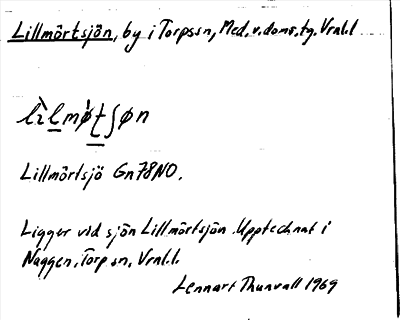 Lillmörtsjön, by i Torpssn, Med.v.doms.tg. Vrnl.l
lìlmø̀tʃøn
Lillmörtsjö Gn78NO.
Ligger vid sjön Lillmörtsjön. Upptecknat i
Naggen, Torp sn, Vrnl.l.
Lennart Thunvall 1969